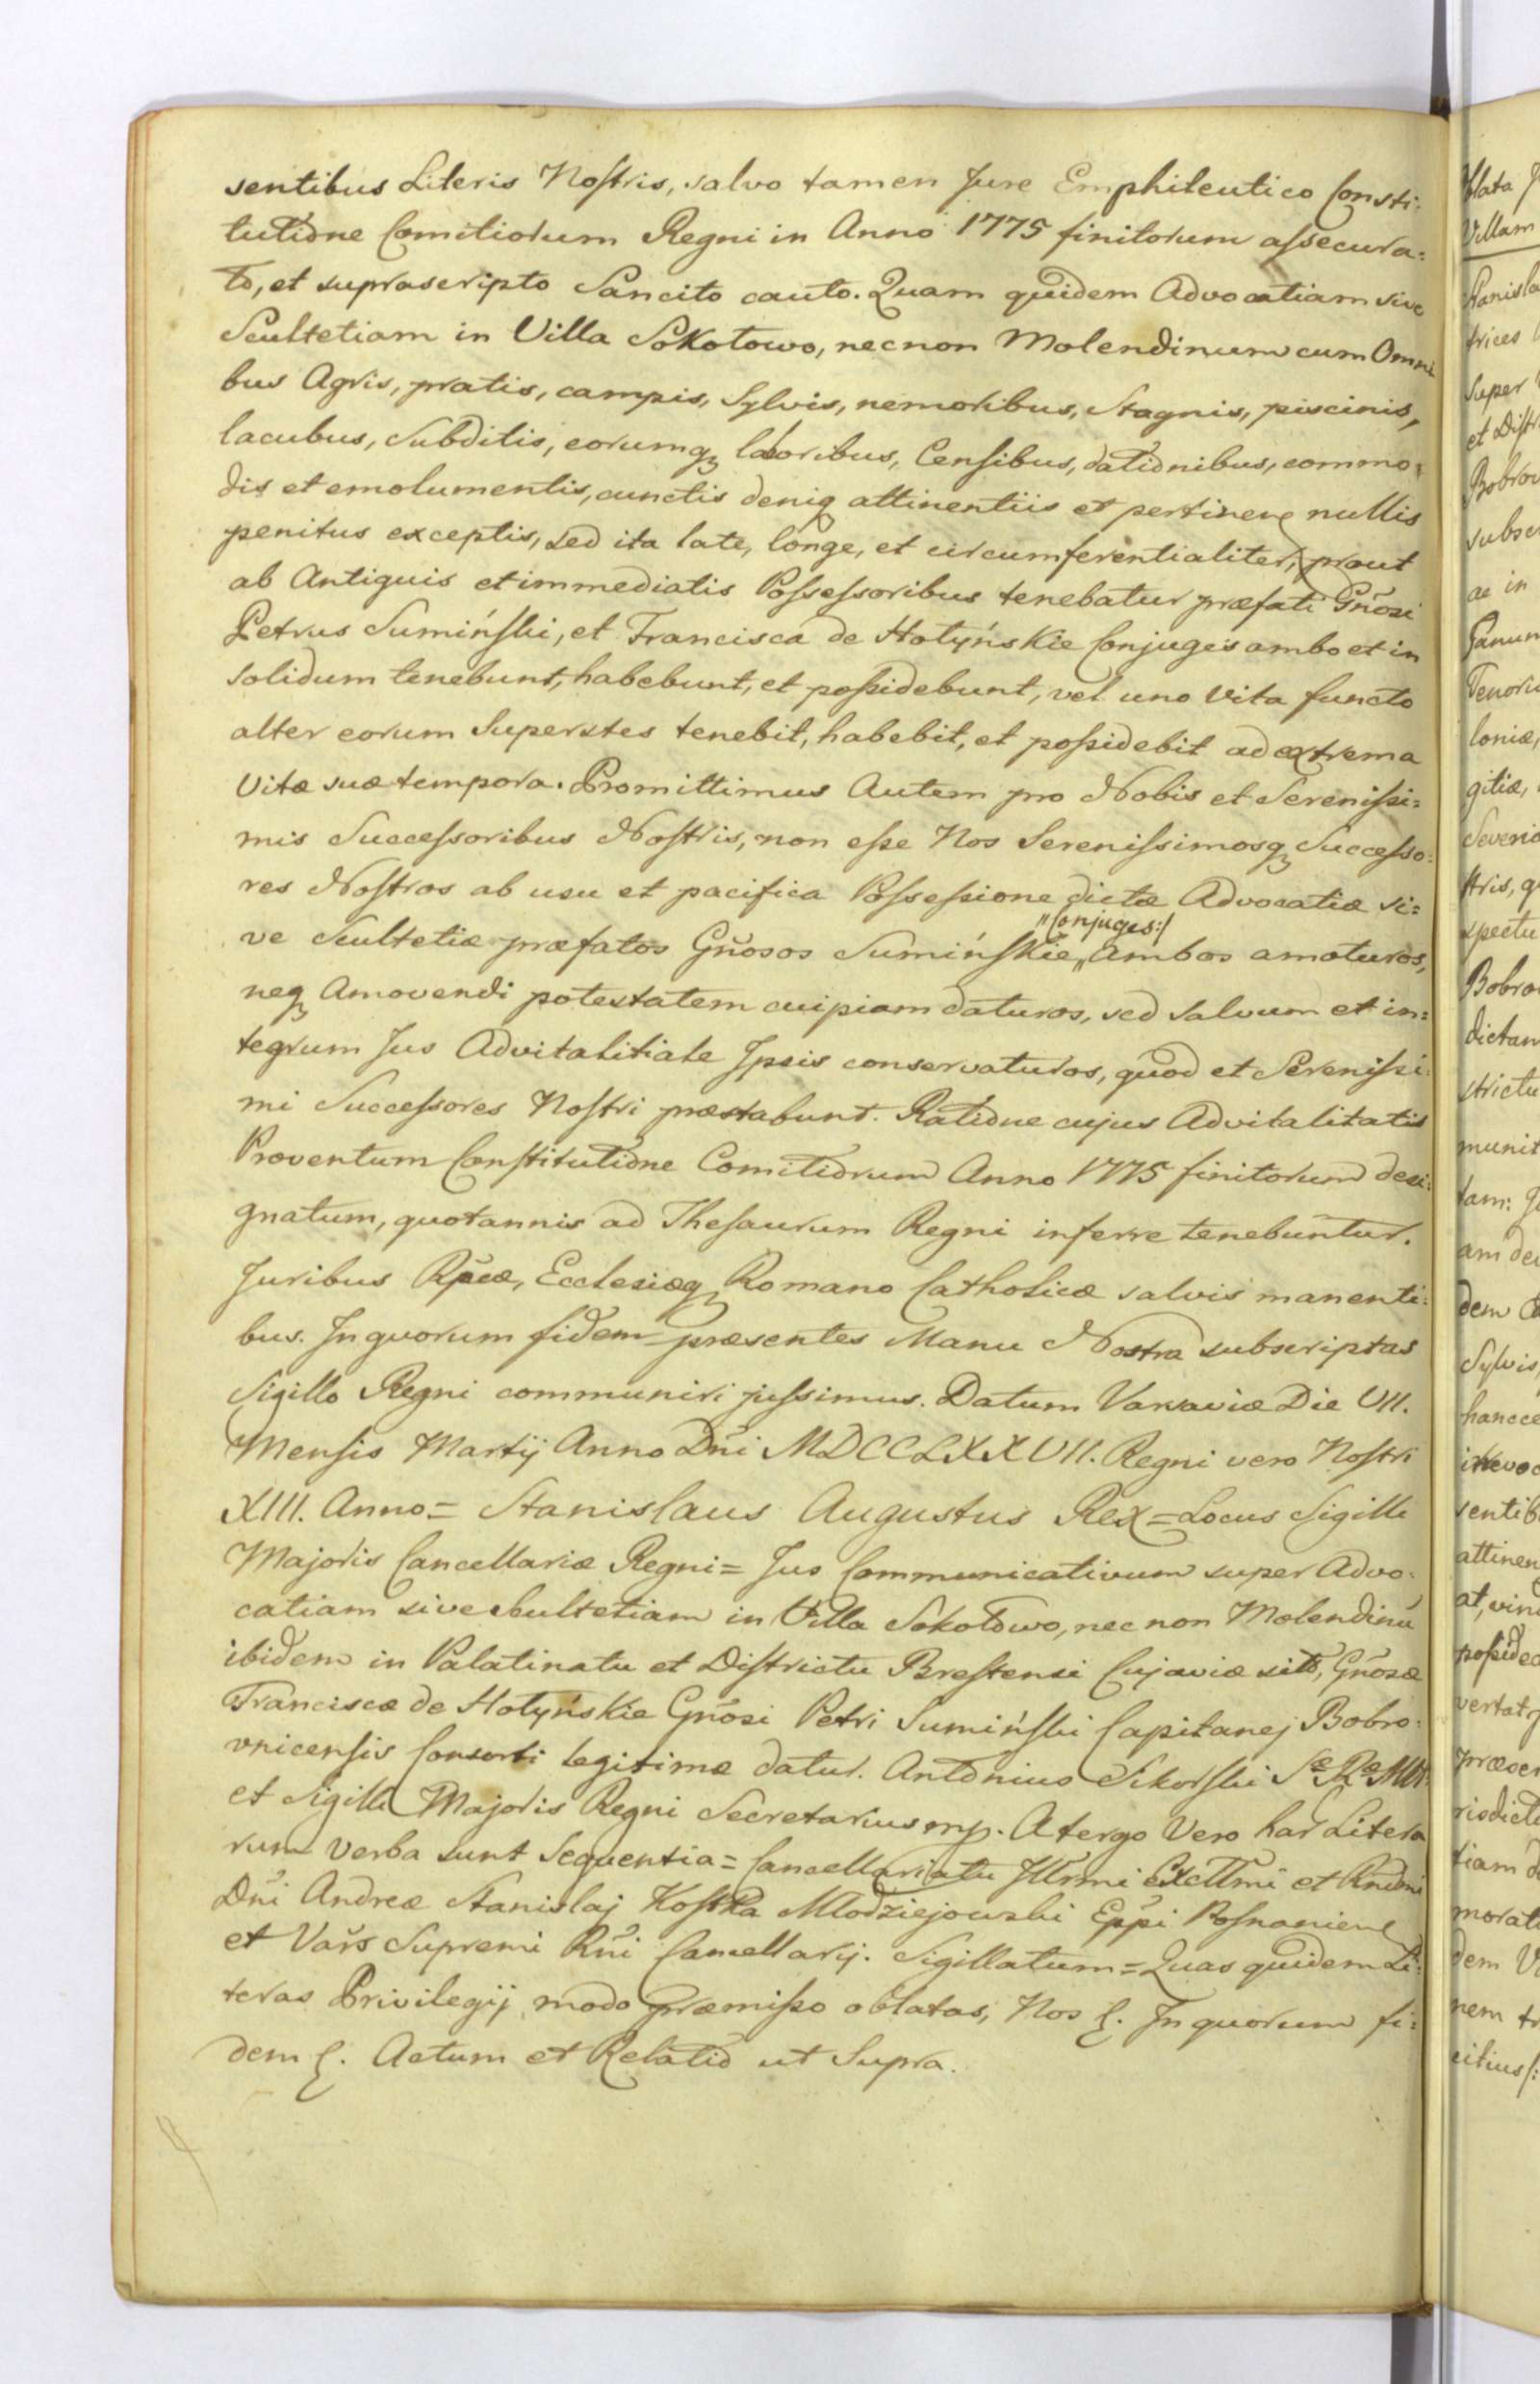 sentibus Literis Nostris, salvo tamen Jure Emphiteutico Consti:
tutione Comitiorum Regni in Anno 1775 finitorum assecura:
to, et suprascripto Sancito cauto. Quam quidem Advocatiam sive
Scultetiam in Villa Sokołowo, necnon Molendinum cum Omni
bus Agris, pratis, campis, Sylvis, nemoribus, Stagnis, piscinis,
lacubus, Subditis, eorumq laboribus, Censibus, dationibus, commo:
dis et emolumentis, cunctis deniq attinentiis et pertinene nullis
penitus exceptis, sed ita late, longe, et circumferentialiter, prout
ab Antiquis et immediatis Possessoribus tenebatur præfati Gñosi
Petrus Sumiński, et Francisca de Hołyńskie Conjuges ambo et in
solidum tenebunt, habebunt, et possidebunt, vel uno Vita functo
alter eorum Superstes tenebit, habebit, et possidebit ad extrema
Vitæ suæ tempora. Promittimus Autem pro Nobis et Serenissi:
mis Successoribus Nostris, non esse Nos Serenissimosq Successo:
res Nostros ab usu et pacifica Possessione dictæ Advocatiæ si:
ve Scultetiæ præfatos Gñosos Sumińskie „Conjuges:/ Ambos amoturos,
neq Amovendi potestatem cuipiam daturos, sed salvum et in:
tegrum Jus Advitalitiale Ipsis conservaturos, quod et Serenissi:
mi Successores Nostri præstabunt. Ratione cujus Advitalitatis
Proventum Constitutione Comitiorum Anno 1775 finitorum desi:
gnatum, quotannis ad Thesaurum Regni inferre tenebuntur.
Juribus Rpcæ, Ecclesiæq Romano Catholicæ salvis manenti:
bus. In quorum fidem præsentes Manu Nostra subscriptas
Sigillo Regni communiri jussimus. Datum Varsaviæ Die VII.
Mensis Martij Anno Dñi MDCCLXXVII. Regni vero Nostri
XIII. Anno = Stanislaus Augustus Rex = Locus Sigilli
Majoris Cancellariæ Regni = Jus Communicativum super Advo:
catiam sive Scultetiam in Villa Sokołowo, nec non Molendinū
ibidem in Palatinatu et Districtu Brestensi Cujaviæ sito, Gñosæ
Franciscæ de Hołyńskie Gñosi Petri Sumiński Capitanej Bobro:
vnicensis Consorti legitimæ datur. Antonius Sikorski Sæ Ræ Mtt
et Sigilli Majoris Regni Secretarius mp. A tergo Vero har Litera
rum verba sunt Sequentia = Cancellariatu Illrmi Excllmi et Rndmi
Dñi Andreæ Stanislaj Kostka Młodziejowski Eppi Posnaniene
et Vars Supremi Rñi Cancellarij. Sigillatum = Quas quidem Li:
teras Privilegij modo præmisso oblatas, Nos &. In quorum fi:
dem &. Actum et Relatio ut Supra.